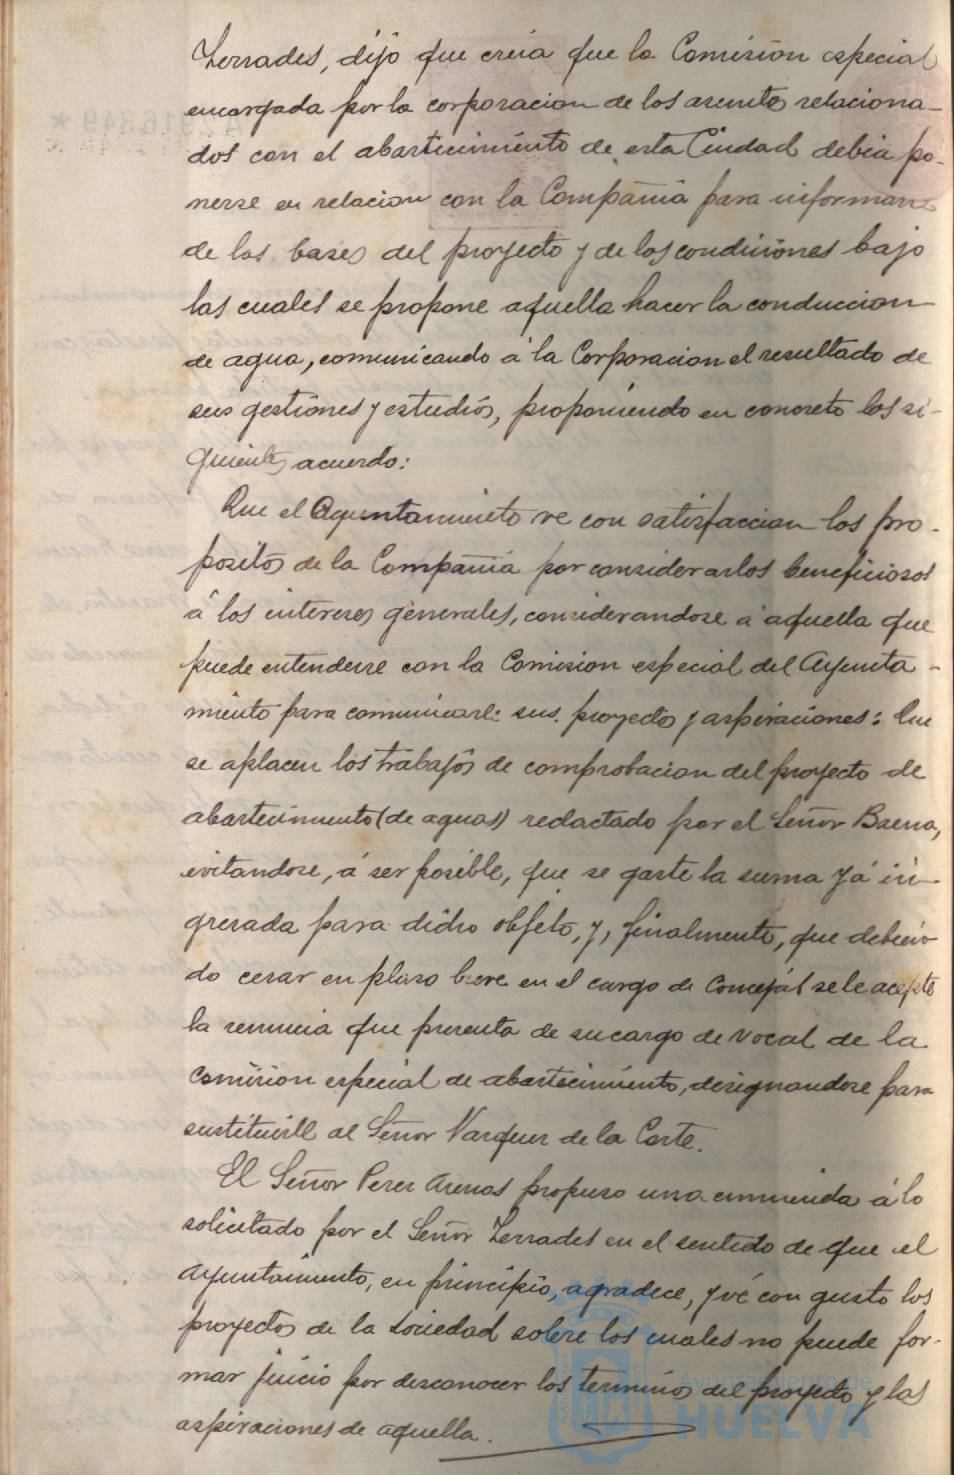 Terrades, dijo que creia que la Comision especial
encargada por la corporacion de los asuntos relaciona-
dos con el abastecimiento de esta Ciudad debia po-
nerse en relacion con la Compañia para informarse
de las bases del proyecto y de las condiciones bajo
las cuales se propone aquella hacer la conduccion
de agua, comunicando á la Corporacion el resultado de
sus gestiones y estudios, proponiendo en concreto los si-
guientes acuerdo:
Que el Ayuntamiento ve con satisfaccion los pro-
positos de la Compañia por considerarlos beneficiosos
á los intereses generales, considerandose á aquella que
puede entenderse con la Comision especial del Ayunta-
miento para comunicarle sus proyectos y aspiraciones: Que
se aplacen los trabajos de comprobacion del proyecto de
abastecimiento (de aguas) redactado por el Señor Baena,
evitandose, á ser posible, que se gaste la suma yá in-
gresada para dicho objeto, y, finalmente, que debien-
do cesar en plaso breve en el cargo de Concejal se le acepte
la renuncia que presenta de su cargo de vocal de la
Comision especial de abastecimiento, designandose para
sustituirle al Señor Vazquez de la Corte.
El Señor Perez Arenas propuso una enmienda á lo
solicitado por el Señor Terrades en el sentido de que el
Ayuntamiento, en principio, agradece, y vé con gusto los
proyectos de la Sociedad sobre los cuales no puede for-
mar juicio por desconocer los terminos del proyecto y las
aspiraciones de aquella.
Ayuntamiento de
HUELVA